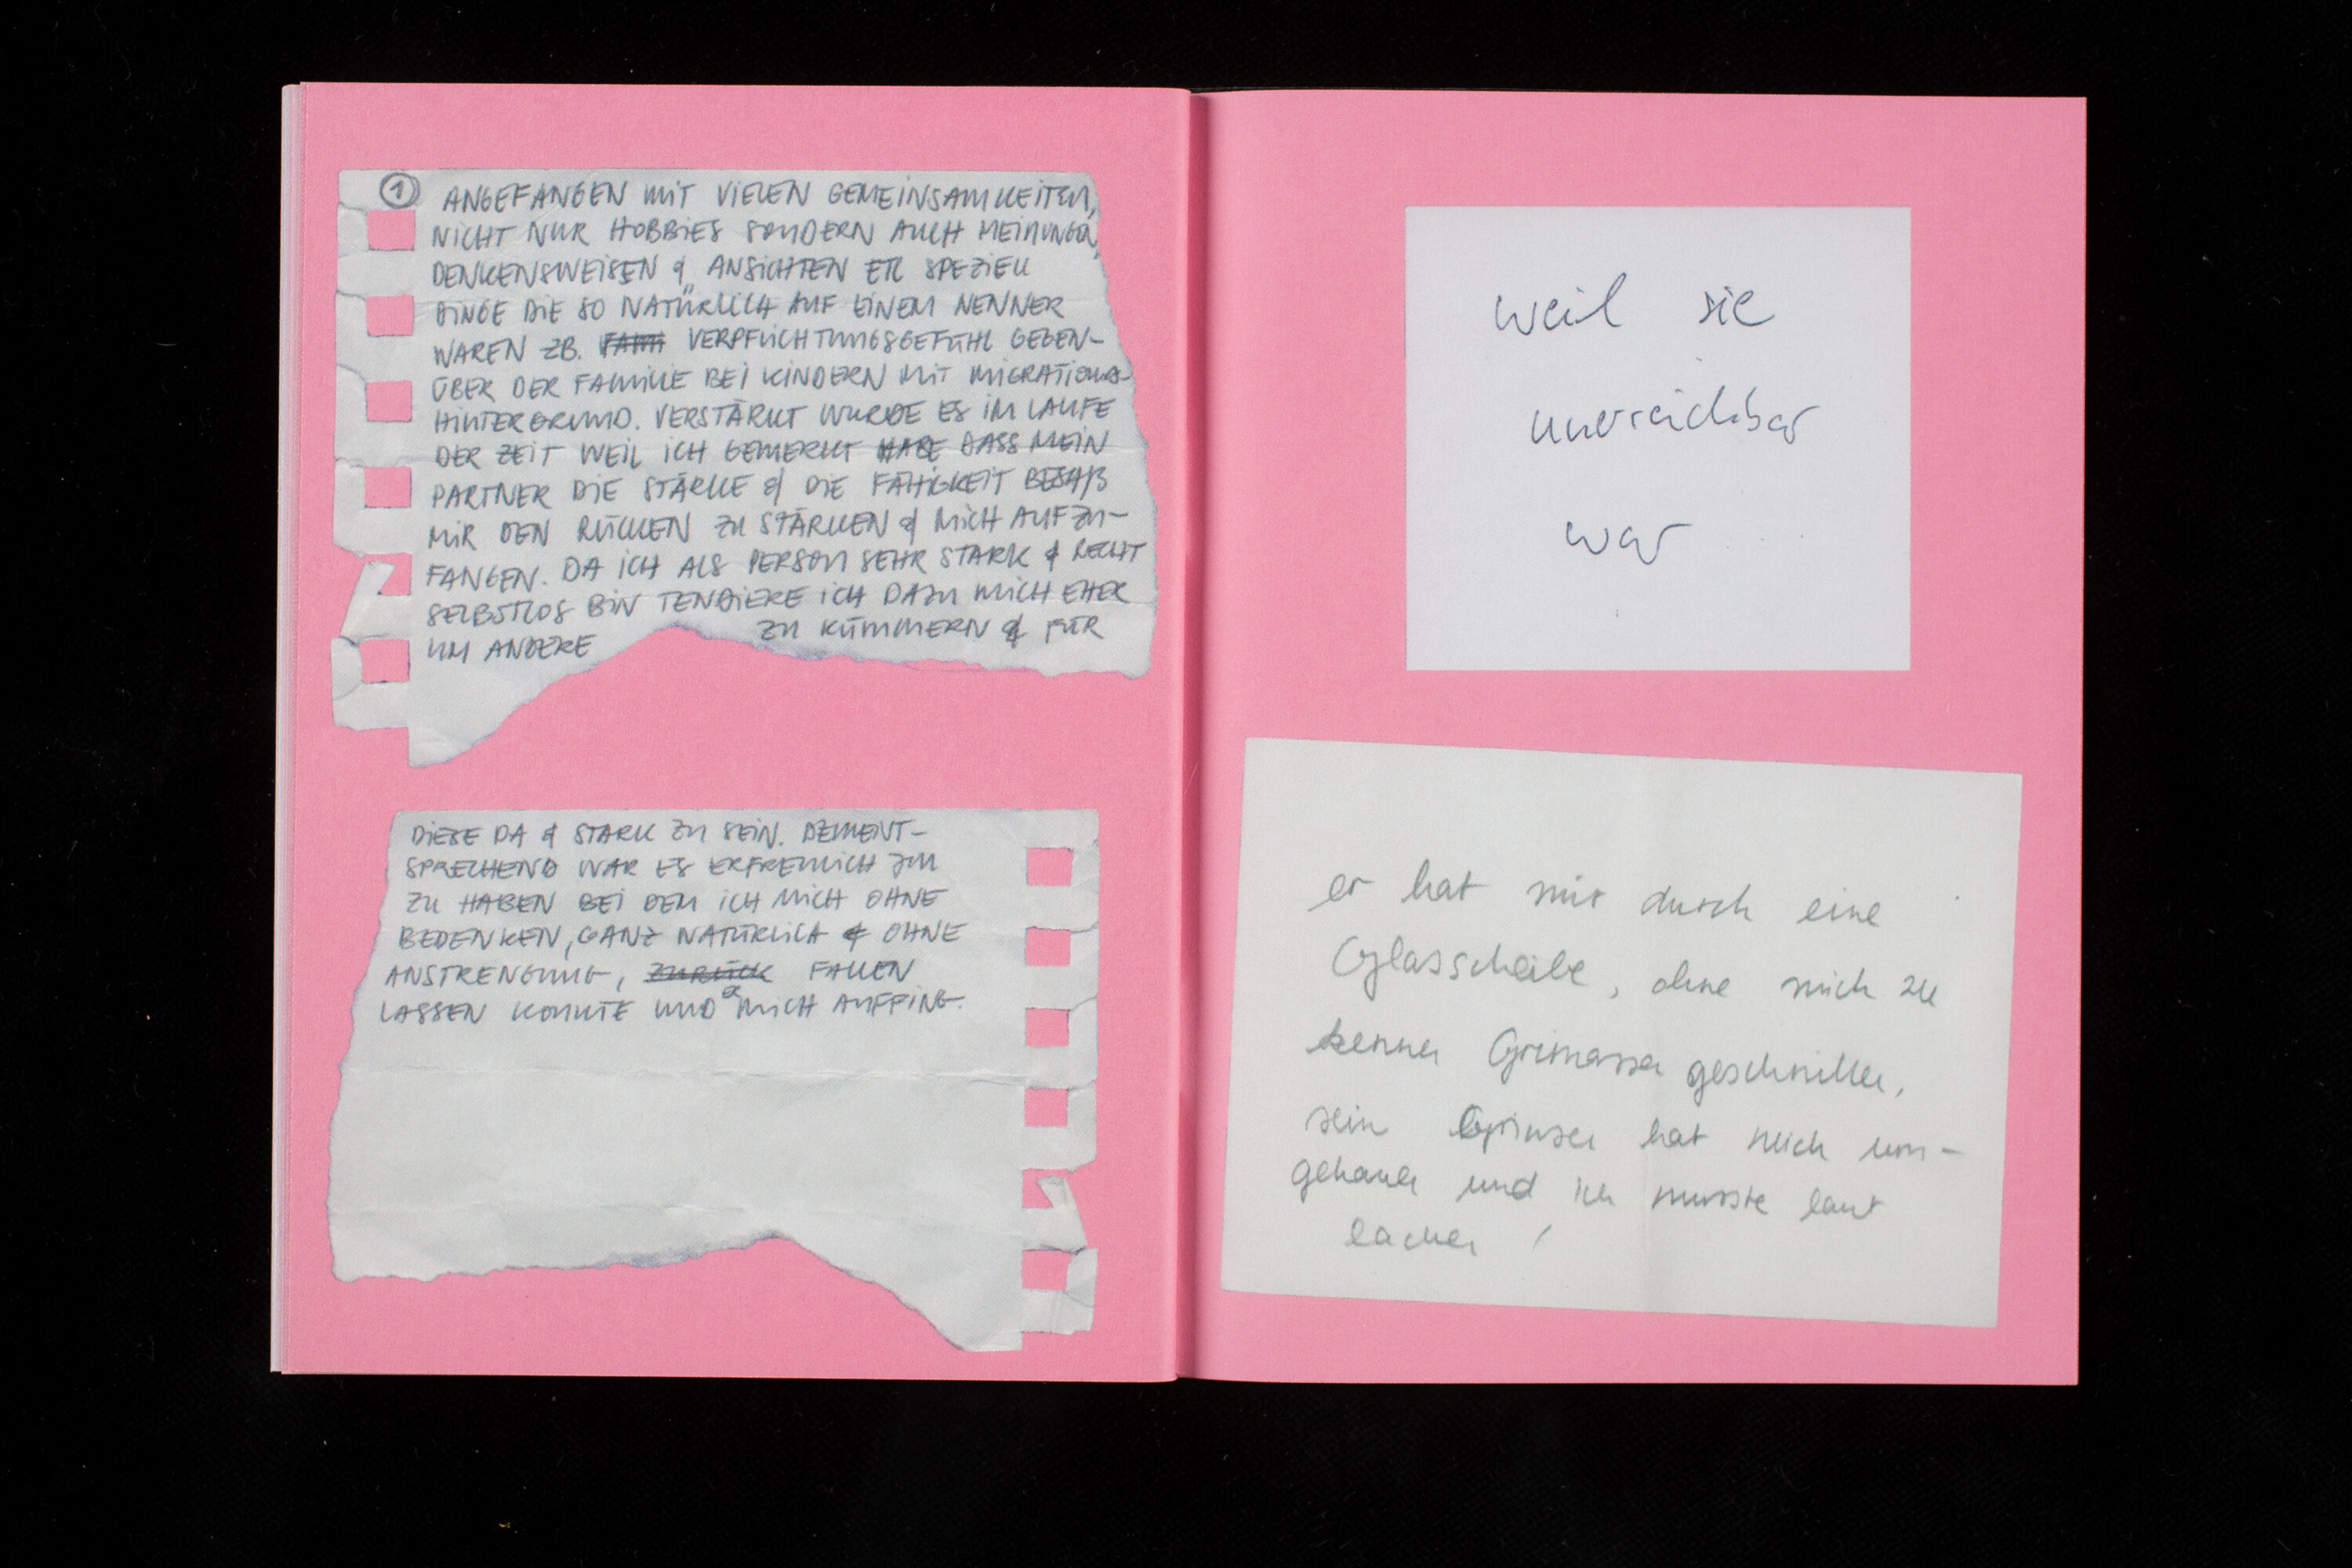 ① ANGEFANGEN MIT VIELEN GEMEINSAMKEITEN,
NICHT NUR HOBBIES SONDERN AUCH MEINUNGEN,
DENKENSWEISEN & ANSICHTEN ETC SPEZIELL
DINGE DIE SO NATÜRLICH AUF EINEM NENNER
WAREN ZB. VERPFLICHTUNGSGEFÜHL GEGEN-
ÜBER DER FAMILIE BEI KINDERN MIT MIGRATIONS-
HINTERGRUND. VERSTÄRKT WURDE ES IM LAUFE
DER ZEIT WEIL ICH GEMERKT HABE DASS MEIN
PARTNER DIE STÄRKE & DIE FÄHIGKEIT BESAß
MIR DEN RÜCKEN ZU STÄRKEN & MICH AUFZU-
FANGEN. DA ICH ALS PERSON SEHR STARK & RECHT
SELBSTLOS BIN TENDIERE ICH DAZU MICH EHER
UM ANDERE ZU KÜMMERN & FÜR
DIESE DA & STARK ZU SEIN. DEMENT-
SPRECHEND WAR ES ERFREULICH
ZU HABEN BEI DEM ICH MICH OHNE
BEDENKEN, GANZ NATÜRLICH & OHNE
ANSTRENGUNG, ZURÜCK FALLEN
LASSEN KONNTE UND MICH AUFFING.
weil sie
unereichbar
war
er hat mir durch eine
Glasscheibe, ohne mich zu
kennen Grimassen geschnitten,
sein Grinsen hat mich um-
gehauen und ich musste laut
lachen!